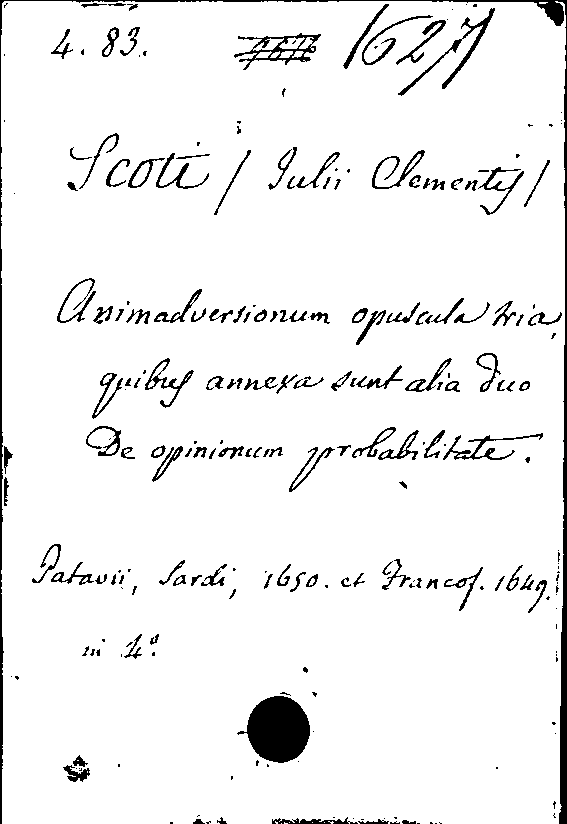 4. 83. 1627
Scoti / Iulii Clementis /
Animadversionum opuscula tria,
quibus annexa sunt alia duo
De opinionum probabilitate.
Patavii, Sardi, 1650. et Francof. 1649.
in 4°.